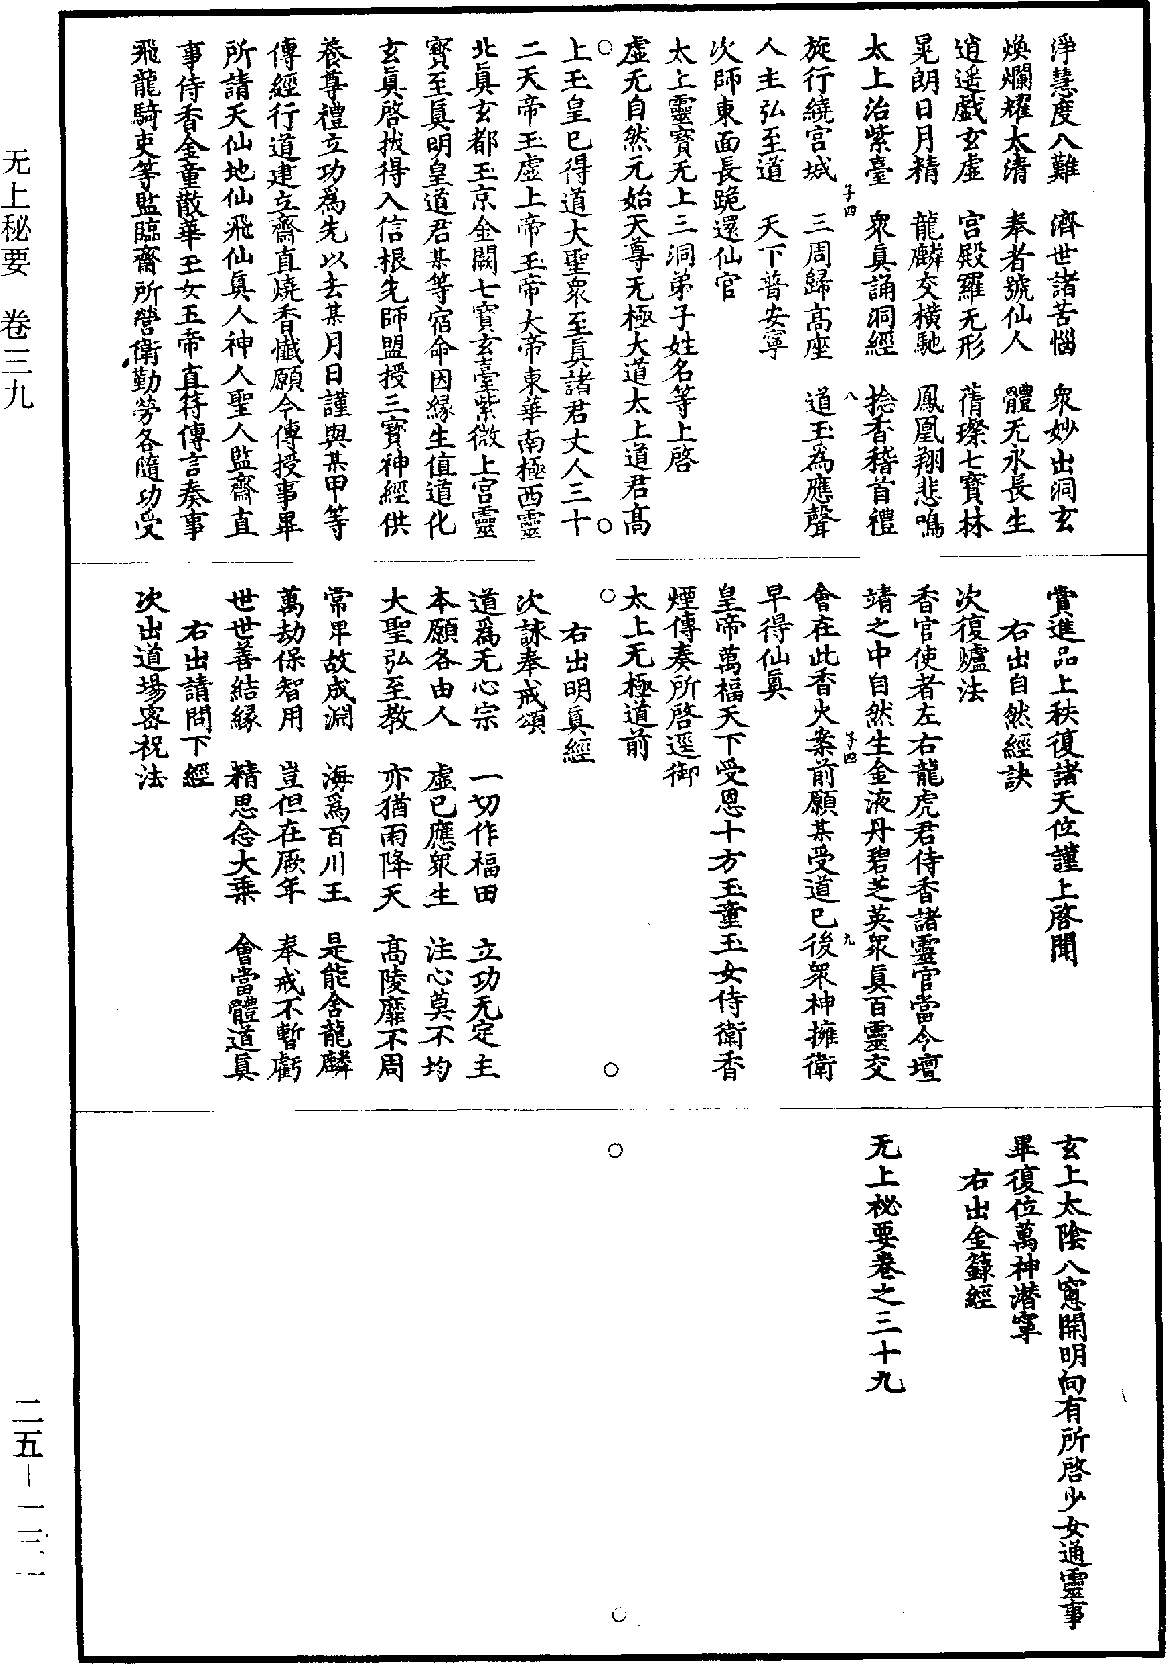 淨慧度八難　濟世諸苦惱　衆妙出洞玄
煥爛耀太清　奉者號仙人　體无永長生
逍遥戲玄虛　宮殿羅无形　蒨璨七寶林
晃朗日月精　龍麟交横馳　鳳凰翔悲鳴
太上治紫臺　衆真誦洞經　捻香稽首禮
旋行繞宮城　三周歸高座　道王爲應聲
人主弘至道　天下普安寧
次師東面長跪還仙官
太上靈寶无上三洞弟子姓名等上啓
虛无自然元始天尊无極大道太上道君高
上玉皇已得道大聖衆至真諸君丈人三十
二天帝玉虛上帝玉帝大帝東華南極西靈
北真玄都玉京金闕七寶玄臺紫微上宮靈
寶至真明皇道君某等宿命因緣生值道化
玄真啓拔得入信根先師盟授三寶神經供
養尊禮立功爲先以去某月日謹與某甲等
傳經行道建立齋直燒香懺願今傳授事畢
所請天仙地仙飛仙真人神人聖人監齋直
事侍香金童散華玉女五帝直符傳言奏事
飛龍騎吏等監臨齋所營衛勤勞各隨功受
賞進品上秩復諸天位謹上啓聞
右出自然經訣
次復爐法
香官使者左右龍虎君侍香諸靈官當令壇
靖之中自然生金液丹碧芝英衆真百靈交
會在此香火案前願某受道已後衆神擁衛
早得仙真
皇帝萬福天下受恩十方玉童玉女侍衛香
煙傳奏所啓逕御
太上无極道前
右出明真經
次詠奉戒頌
道爲无心宗　一切作福田　立功无定主
本願各由人　虛已應衆生　注心莫不均
大聖弘至教　亦猶雨降天　高陵靡不周
常卑故成淵　海爲百川王　是能舍龍麟
萬劫保智用　豈但在厥年　奉戒不暫虧
世世善結緣　精思念大乘　會當體道真
右出請問下經
次出道場密祝法
玄上太陰八窻開明向有所啓少女通靈事
畢復位萬神潜寧
右出金籙經
无上秘要卷之三十九
八
九
无上秘要　卷三九
二五－一三一